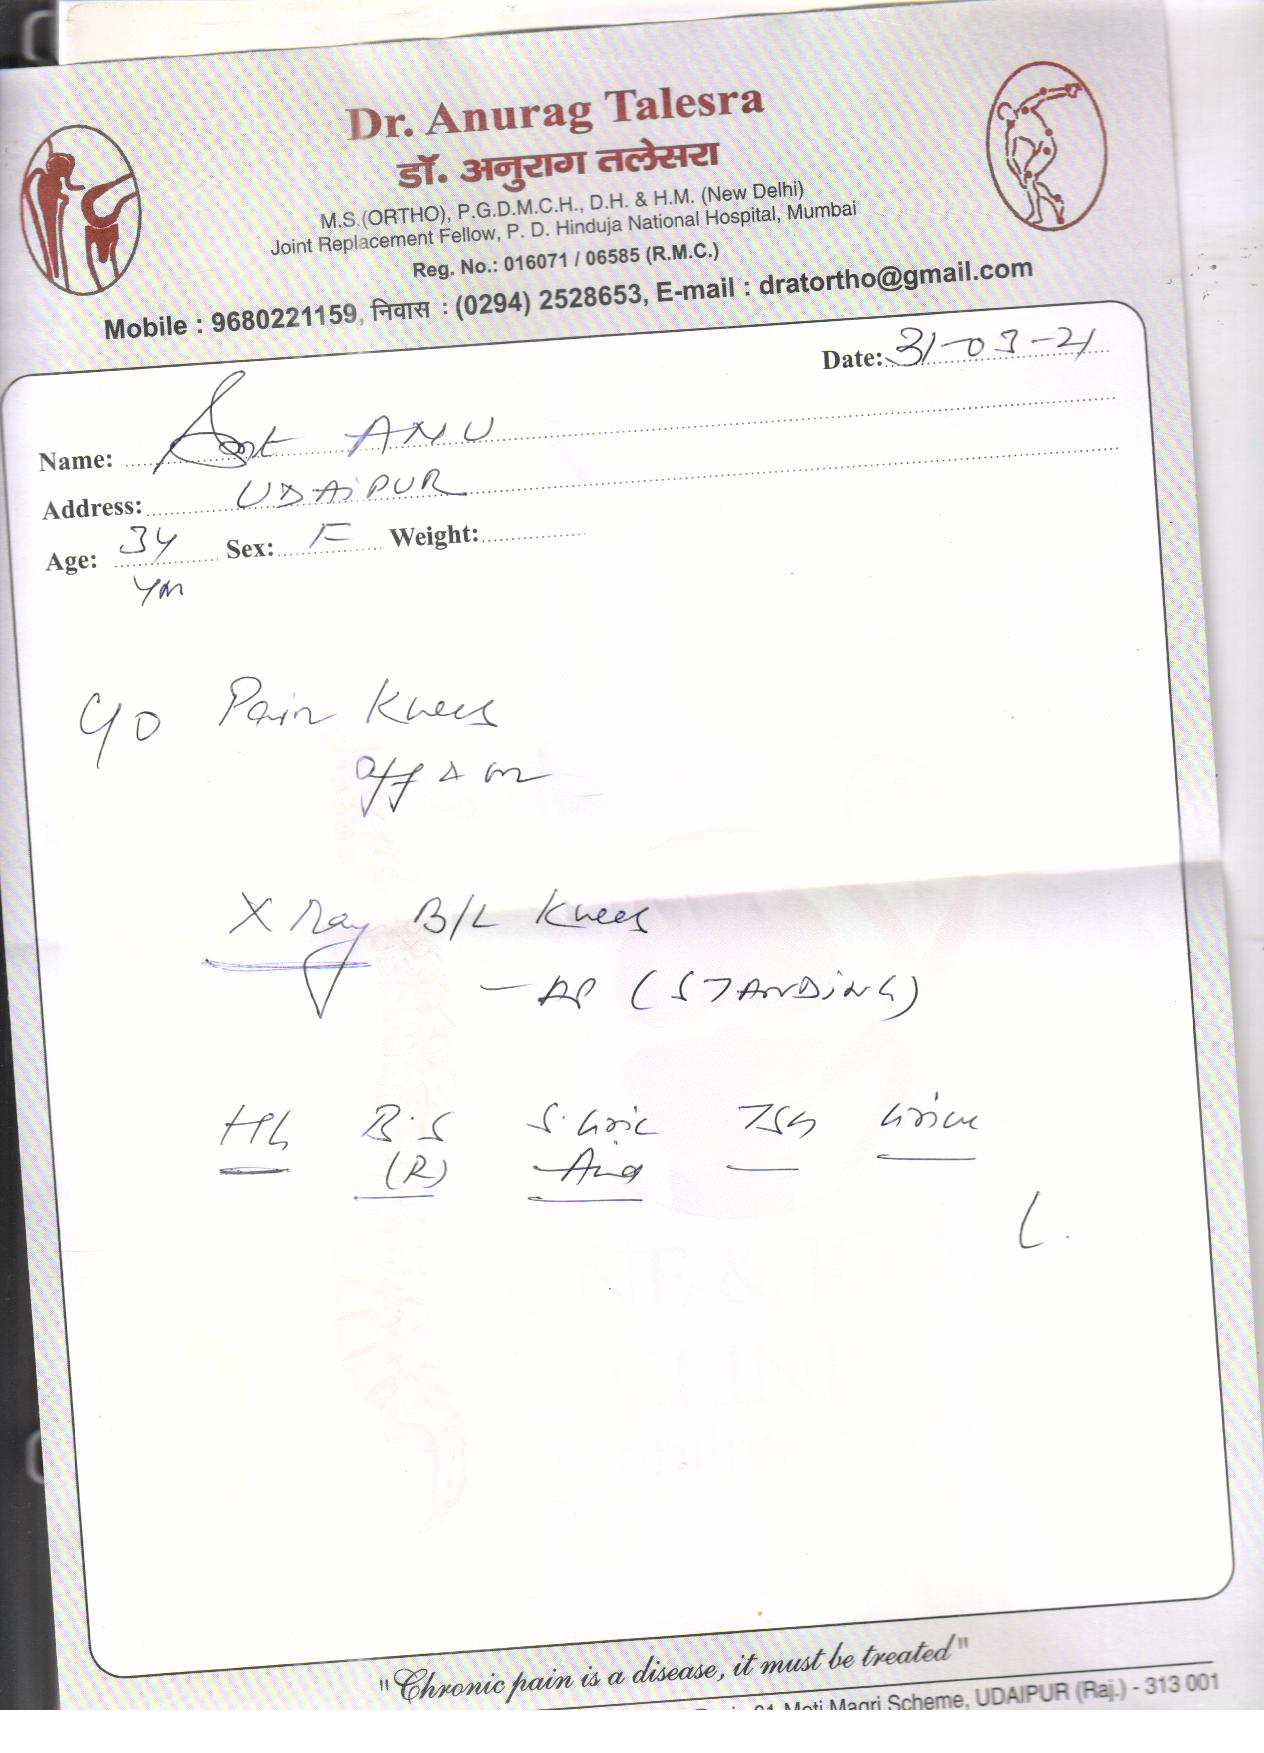 Dr. Anurag Talesra
डॉ. अनुराग तलेसरा
M.S.(ORTHO), P.G.D.M.C.H., D.H. & H.M. (New Delhi)
Joint Replacement Fellow, P. D. Hinduja National Hospital, Mumbai
Reg. No.: 016071 / 06585 (R.M.C.)
Mobile : 9680221159, निवास : (0294) 2528653, E-mail : dratortho@gmail.com
Date: 31-03-21
Name: Smt ANU
Address: UDAIPUR
Age: 34 Sex: F Weight:
C/O Pain Knees
off & on
X Ray B/L Knees
- AP (STANDING)
Hb B.S S. Uric TSH Urine
(R) Acid
NE & JOIN
CLINI
Mobility
"Chronic pain is a disease, it must be treated"
Moti Magri Scheme, UDAIPUR (Raj.) - 313 001